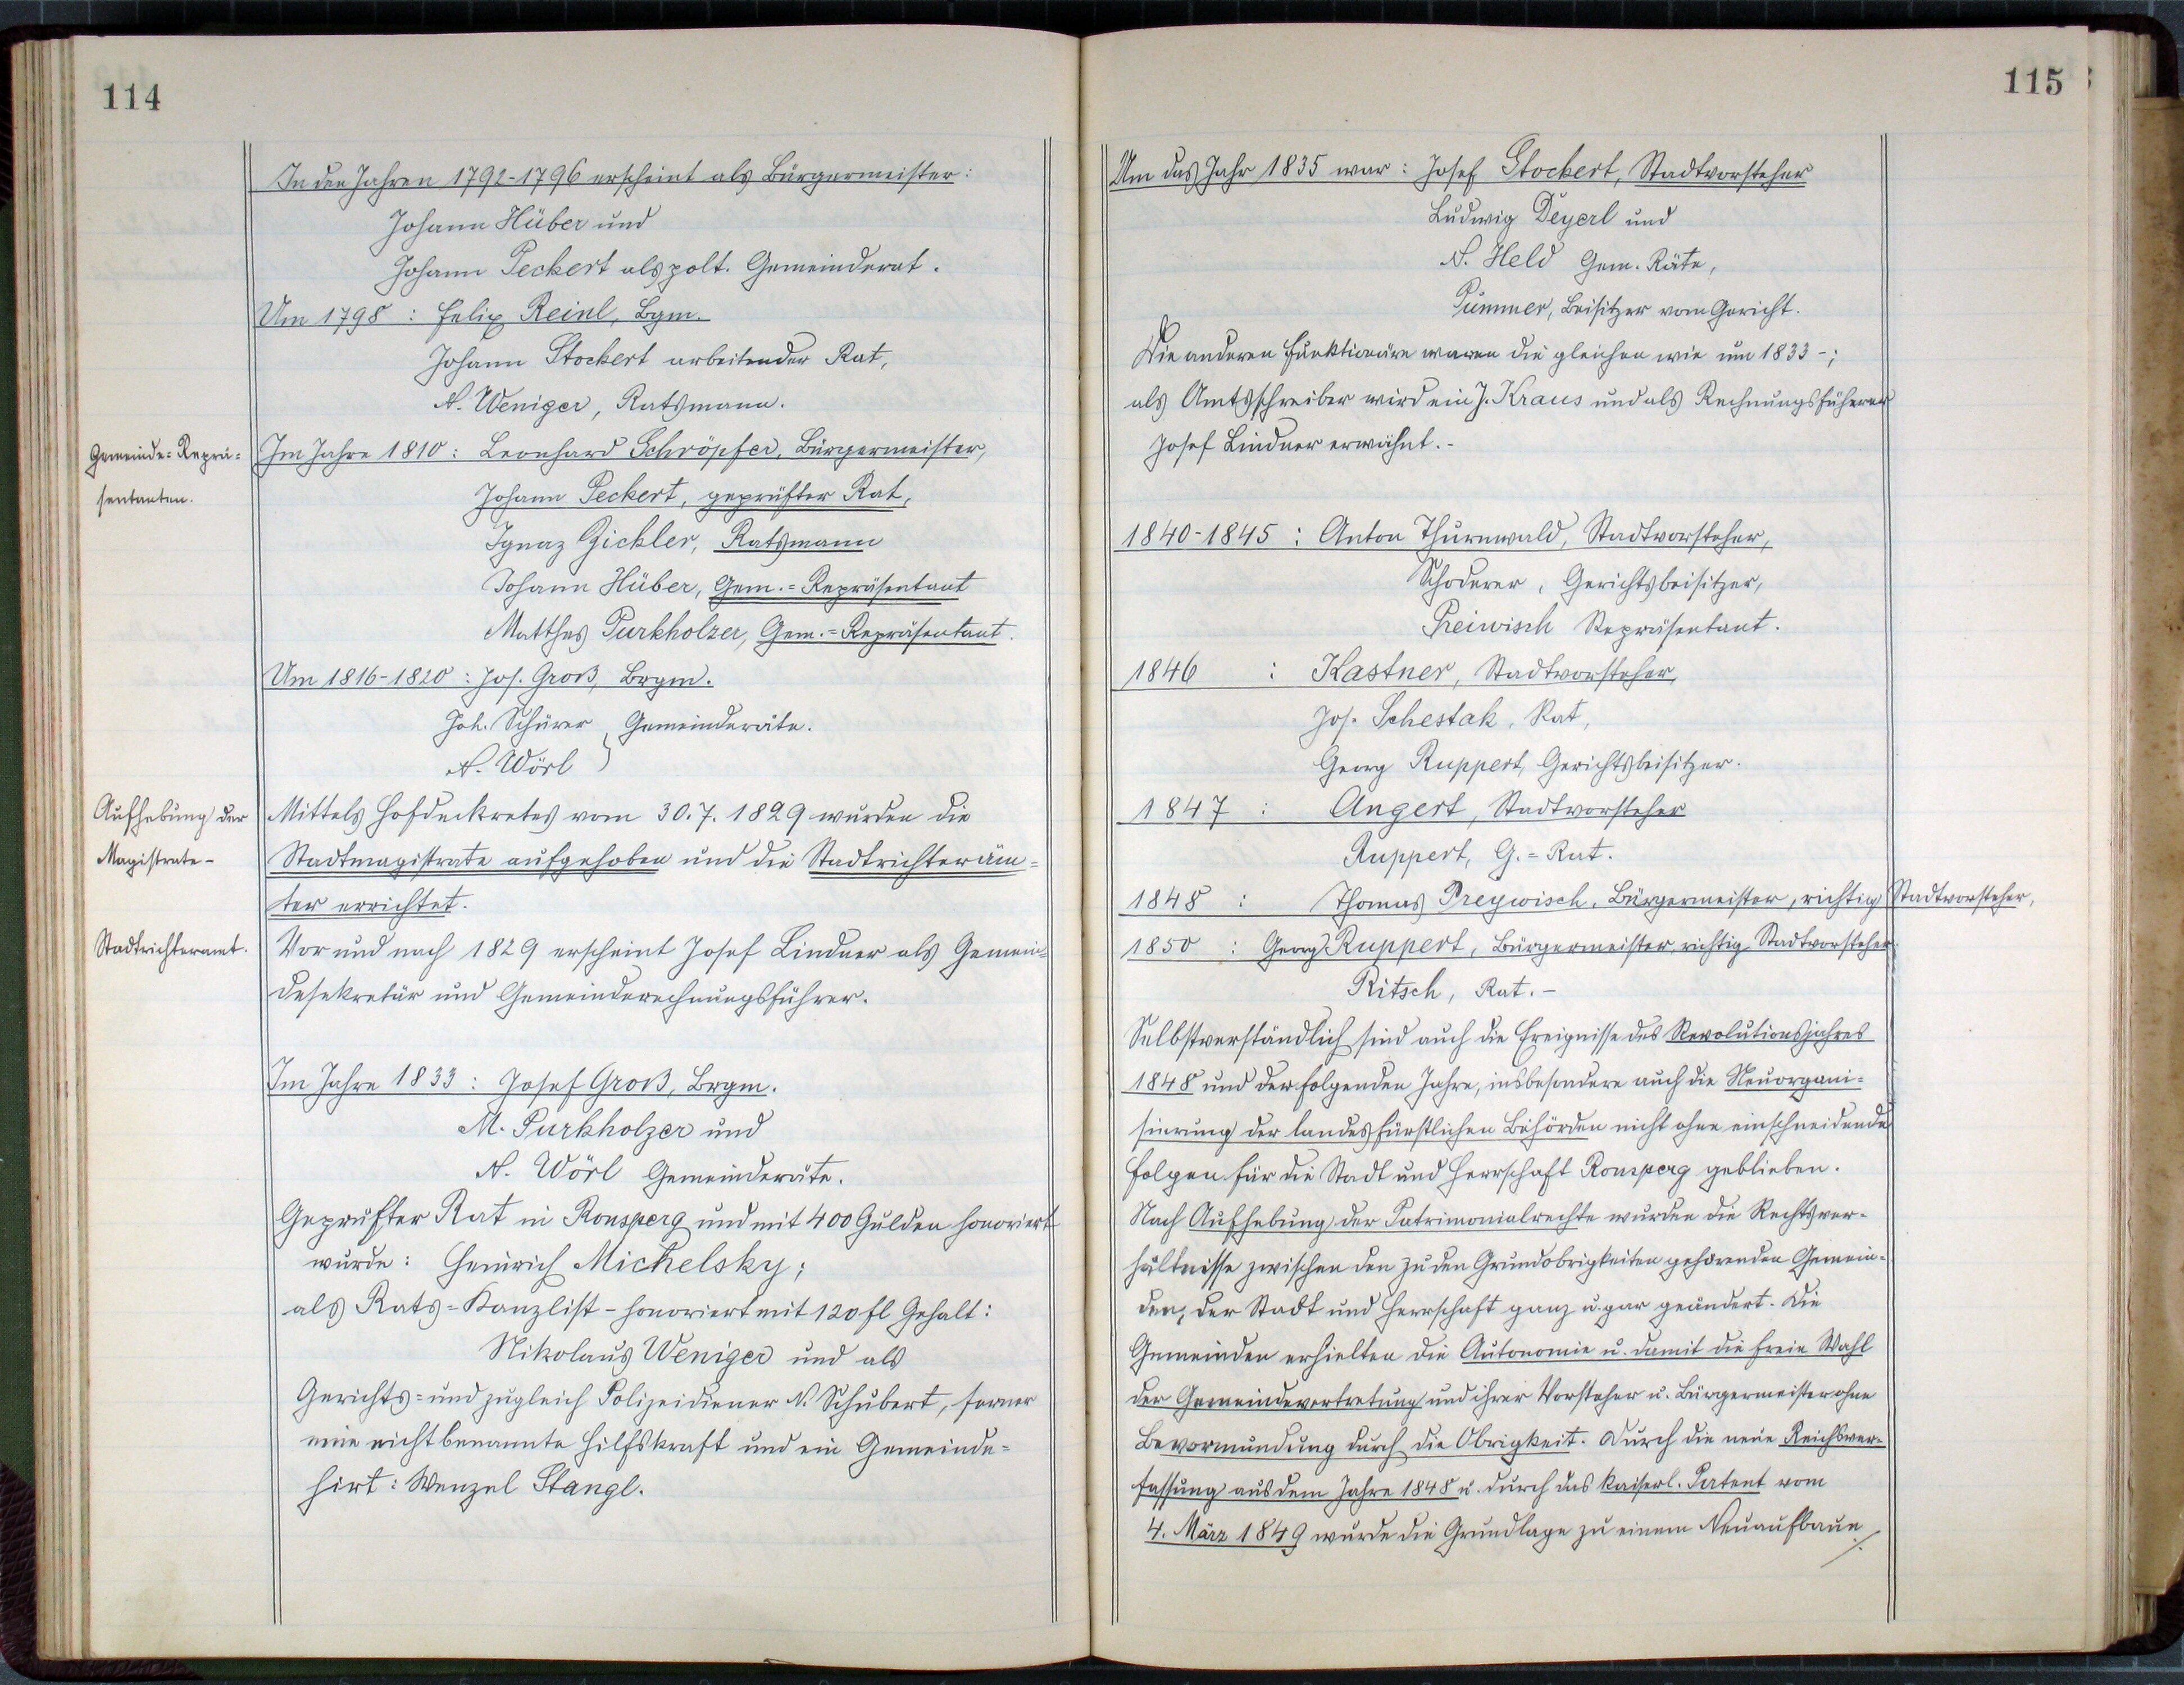 114
In den Jahren 1792-1796 erscheint als Bürgermeister:
Johann Hüber und
Johann Peckert als polt. Gemeinderat.
Um 1798 : Felix Reinl, Bgm.
Johann Stockert arbeitender Rat,
N. Weniger, Ratsmann.
Gemeinde-Reprä-
sentanten.
Im Jahre 1810: Leonhard Schröpfer, Bürgermeister,
Johann Peckert, geprüfter Rat,
Ignaz Zickler, Ratsmann
Johann Hüber, Gem.=Repräsentant
Matthes Purkholzer, Gem.=Repräsentant.
Um 1816-1820: Jos. Groß, Brgm.
Joh. Schürer } Gemeinderäte.
N. Wörl
Aufhebung der
Magistrate-
Mittels Hofdeckretes vom 30.7.1829 wurden die
Stadtmagistrate aufgehoben und die Stadtrichteräm=
ter errichtet.
Stadtrichteramt.
Vor und nach 1829 erscheint Josef Lindner als Gemein=
desekretär und Gemeinderechnungsführer.
Im Jahre 1833: Josef Groß, Brgm.
M. Purkholzer und
N. Wörl Gemeinderäte.
Geprüfter Rat in Ronsperg und mit 400 Gulden honoriert
wurde: Heinrich Michelsky;
als Rats=Kanzlist - honoriert mit 120 fl Gehalt:
Nikolaus Weniger und als
Gerichts= und zugleich Polizeidiener N. Schubert, ferner
eine nichtbenannte Hilfskraft und ein Gemeinde=
hirt: Wenzel Stangl.
115
Um das Jahr 1835 war: Josef Stockert, Stadtvorsteher
Ludwig Deyerl und
N. Held Gem. Räte,
Pummer, Beisitzer vom Gericht.
Die anderen Funktionäre waren die gleichen wie um 1833 -;
als Amtsschreiber wird ein J. Kraus und als Rechnungsführer
Josef Lindner erwähnt.-
1840-1845 : Anton Thurnwald, Stadtvorsteher,
Schoderer, Gerichtsbeisitzer,
Preiwisch Repräsentant.
1846 : Kastner, Stadtvorsteher,
Jos. Schestak, Rat,
Georg Ruppert, Gerichtsbeisitzer.
1847 : Angert, Stadtvorsteher
Ruppert, G.=Rat.
1848 : Thomas Preywisch, Bürgermeister, richtig Stadtvorsteher,
1850 : Georg Ruppert, Bürgermeister, richtig Stadtvorsteher.
Ritsch, Rat.-
Selbstverständlich sind auch die Ereignisse des Revolutionsjahres
1848 und der folgenden Jahre, insbesondere auch die Neuorgani=
sierung der landesfürstlichen Behörden nicht ohne einschneidende
Folgen für die Stadt und Herrschaft Ronsperg geblieben.
Nach Aufhebung der Patrimonialrechte wurden die Rechtsver-
hältnisse zwischen den zu den Grundobrigkeiten gehörenden Gemein=
den, der Stadt und Herrschaft ganz u. gar geändert. Die
Gemeinden erhielten die Autonomie u. damit die freie Wahl
der Gemeindevertretung und ihrer Vorsteher u. Bürgermeister ohne
Bevormundung durch die Obrigkeit. Durch die neue Reichsver=
fassung aus dem Jahre 1848 u. durch das kaiserl. Patent vom
4. März 1849 wurde die Grundlage zu einem Neuaufbaue ./.